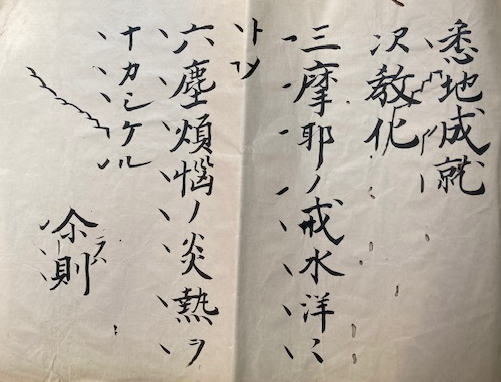 悉地成就
次教化
三摩耶ノ戒水洋ミ
トソ
六塵煩悩ノ炎熱ヲ
ナカシケル
余則